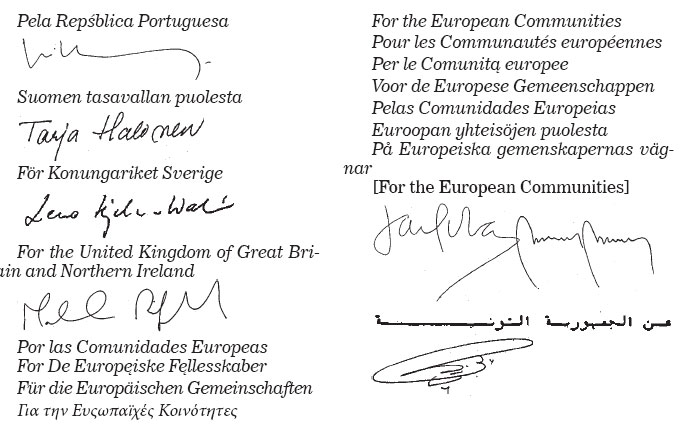 Pela Repśblica Portuguesa
Suomen tasavallan puolesta
Tarja Halonen
För Konungariket Sverige
For the United Kingdom of Great Bri-
ain and Northern Ireland
Por las Comunidades Europeas
For De Europęiske Fęllesskaber
Für die Europäischen Gemeinschaften
Για την Ευςωπαϊχές Κοινότητες
For the European Communities
Pour les Communautés européennes
Per le Comunitą europee
Voor de Europese Gemeenschappen
Pelas Comunidades Europeias
Euroopan yhteisöjen puolesta
På Europeiska gemenskapernas väg-
nar
[For the European Communities]
عن الجمهورية التونسية